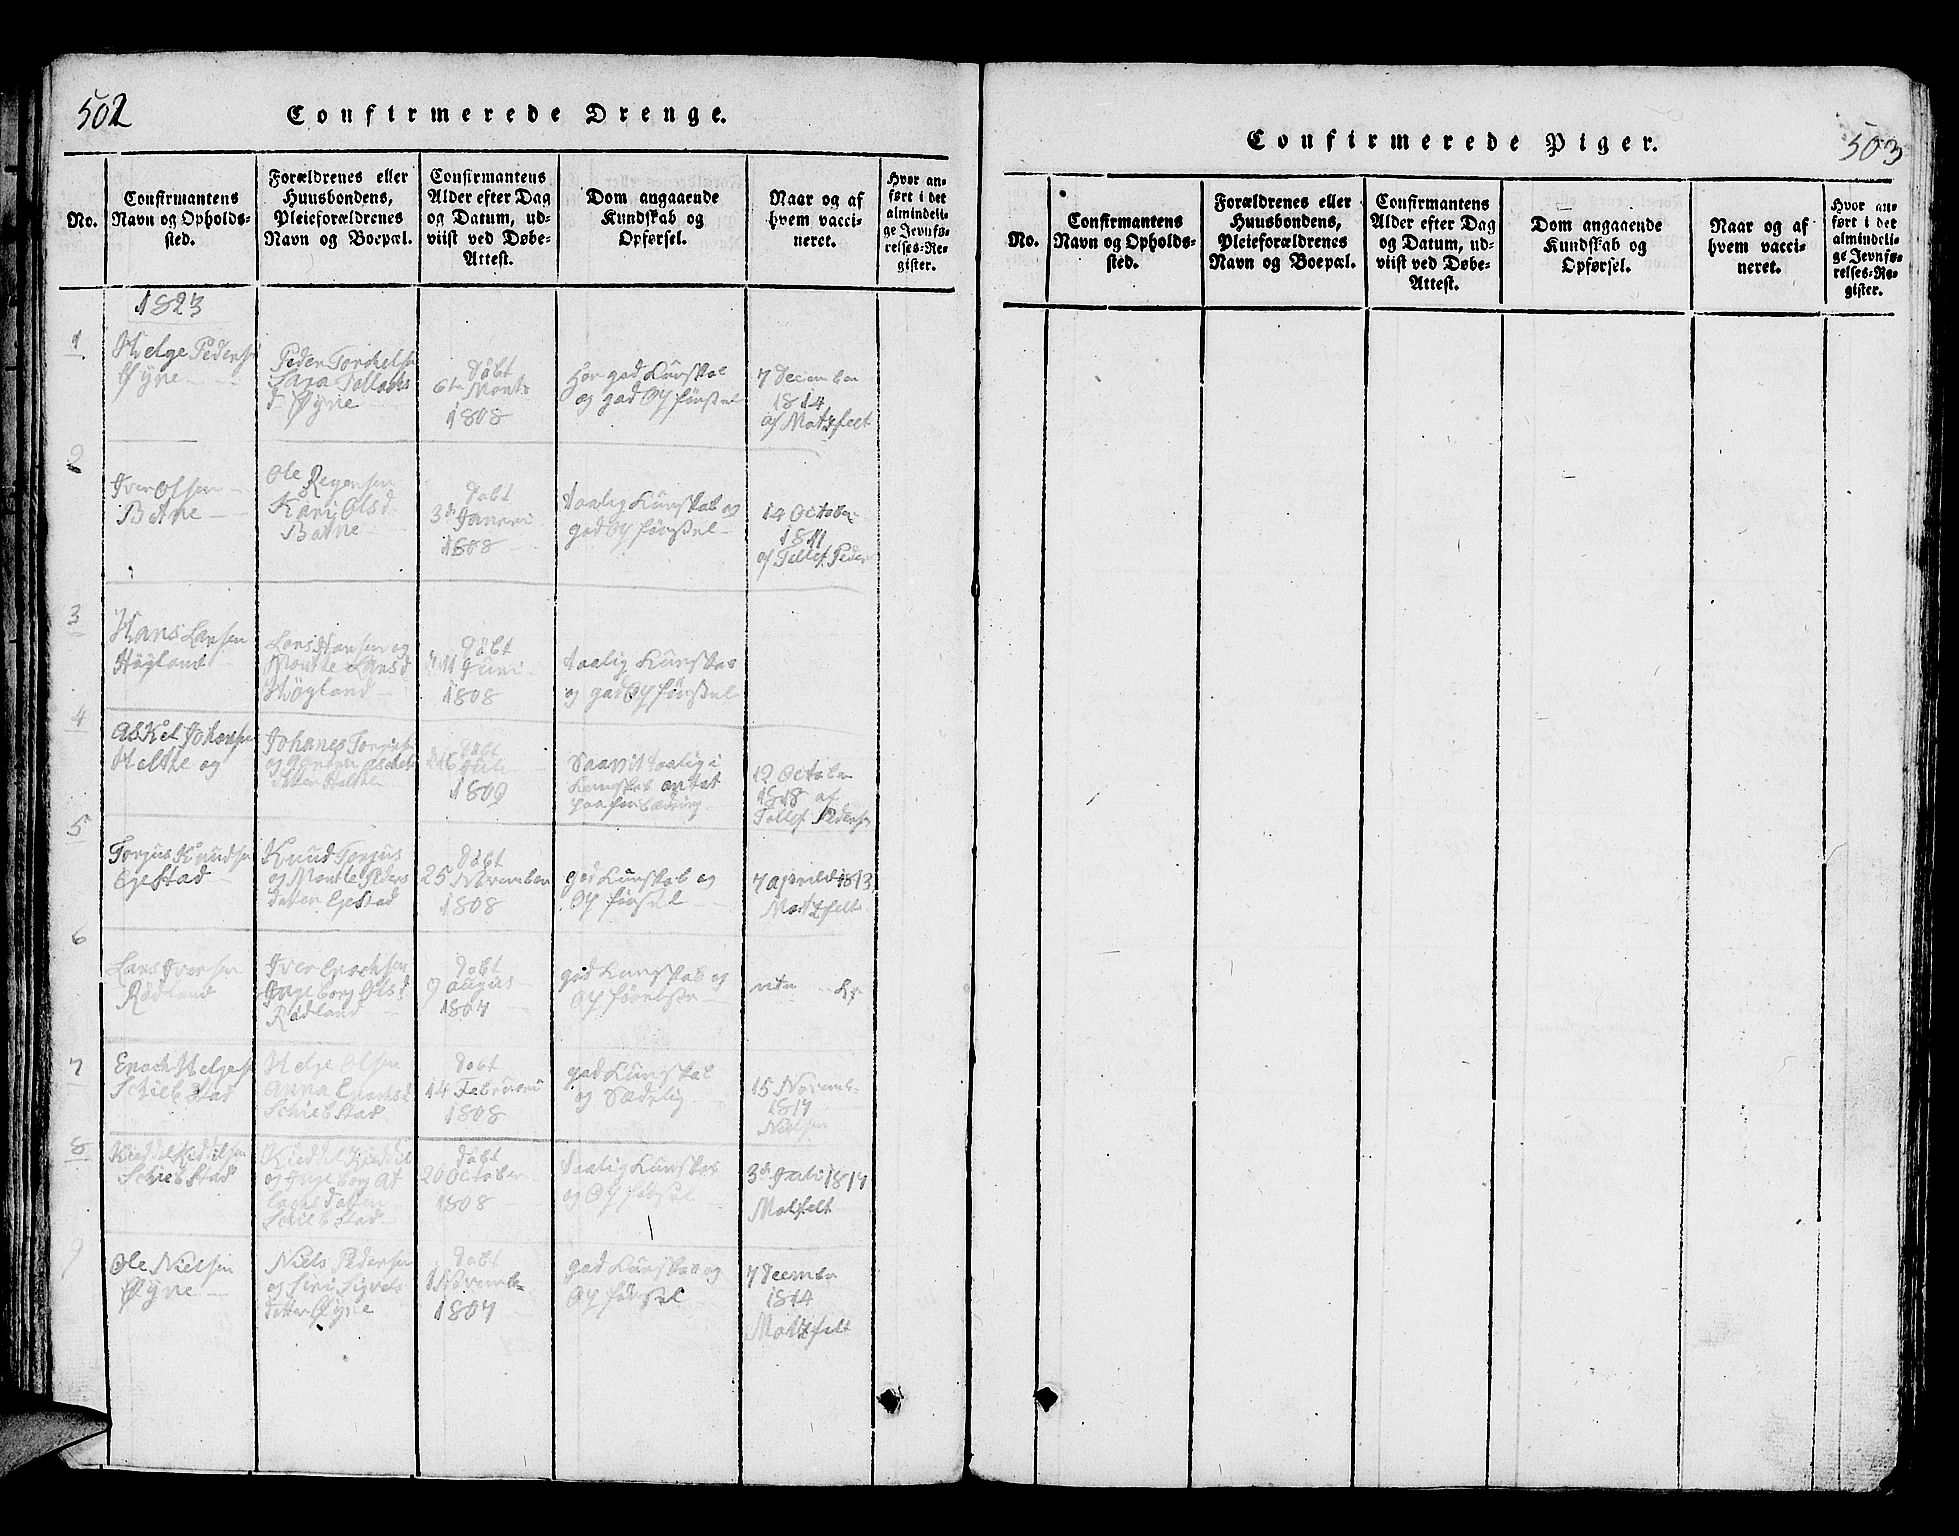 502
Confirmerede Drenge.
No.
Confirmantens
Navn og Opholds-
sted.
Forældrenes eller
Huusbondens,
Pleieforældrenes
Navn og Boepæl.
Confirmantens
Alder efter Dag
og Datum, ud-
viist ved Døbe-
Attest.
Dom angaaende
Kundskab og
Opførsel.
Naar og af
hvem vacci-
neret.
Hvor an-
ført i det
almindeli-
ge Jevnfø-
relses-Re-
gister.
1823
1
Helge Peders
Øyne
Peder Torchels
Sara Tollachs
d Øyne
døbt
6te Monts
1808
Har god Kunskab
og god Opførssel
7 December
1814
af Motzfelt
2
Iver Olsen
Batne
Ole Regersen
Kari Olsd
Batne
døbt
3de Januari
1808
taalig Kunskab og
god Opførssel
14 October
1811
af Tollef Peder
3
Hans Larsen
Høyland
Lars Hansen og
Larsd
Høyland
døbt
Juni
1808
taalig Kunskab
og god Opførssel
4
Askel Johanse
Helthe og
Johanes
og
datter
døbt
1809
Saavit taalig i
Kunskab antat
paa forbædring
12 October
1818 af
Tollef Pedersen
5
Torjus Knudsen
Ejestad
Knud Torjus
og Peders
datter Ejestad
døbt
25 November
1808
god Kunskab og
Opførssel
7 April 1813
Motzfelt
6
Lars Iversen
Rødland
Iver Enochsen
Ingeborg Olsd
Rødland
døbt
9 augus
1807
god Kunskab og
7
Enoch Helgese
Schiebstad
Helge Olsen
Anna Enochsd
Schiebstad
døbt
14 Februari
1808
god Kunskab
og Sædelig
15 Novemb
1817
Nielsen
8
Kieddel Keddilsen
Schiebstad
Kieddel Kieddel
og Ingeborg At
lachs datter
Schiebstad
døbt
20 October
1808
Taalig Kunskab
og Opførssel
3de Juli 1817
Motfelt
9
Ole Nielsen
Øyne
Niels Pedersen
og Siri Sigvals
datter Øyne
døbt
1 Novemb
1807
god Kunskab og
Opførssel
7 Decembr
1814
Motzfelt
503
Confirmerede Piger.
No.
Confirmantens
Navn og Opholds-
sted.
Forældrenes eller
Huusbondens,
Pleieforældrenes
Navn og Boepæl.
Confirmantens
Alder efter Dag
og Datum, ud-
viist ved Døbe-
Attest.
Dom angaaende
Kundskab og
Opførsel.
Naar og af
hvem vacci-
neret.
Hvor an-
ført i det
almindeli-
ge Jevnfø-
relses-Re-
gister.